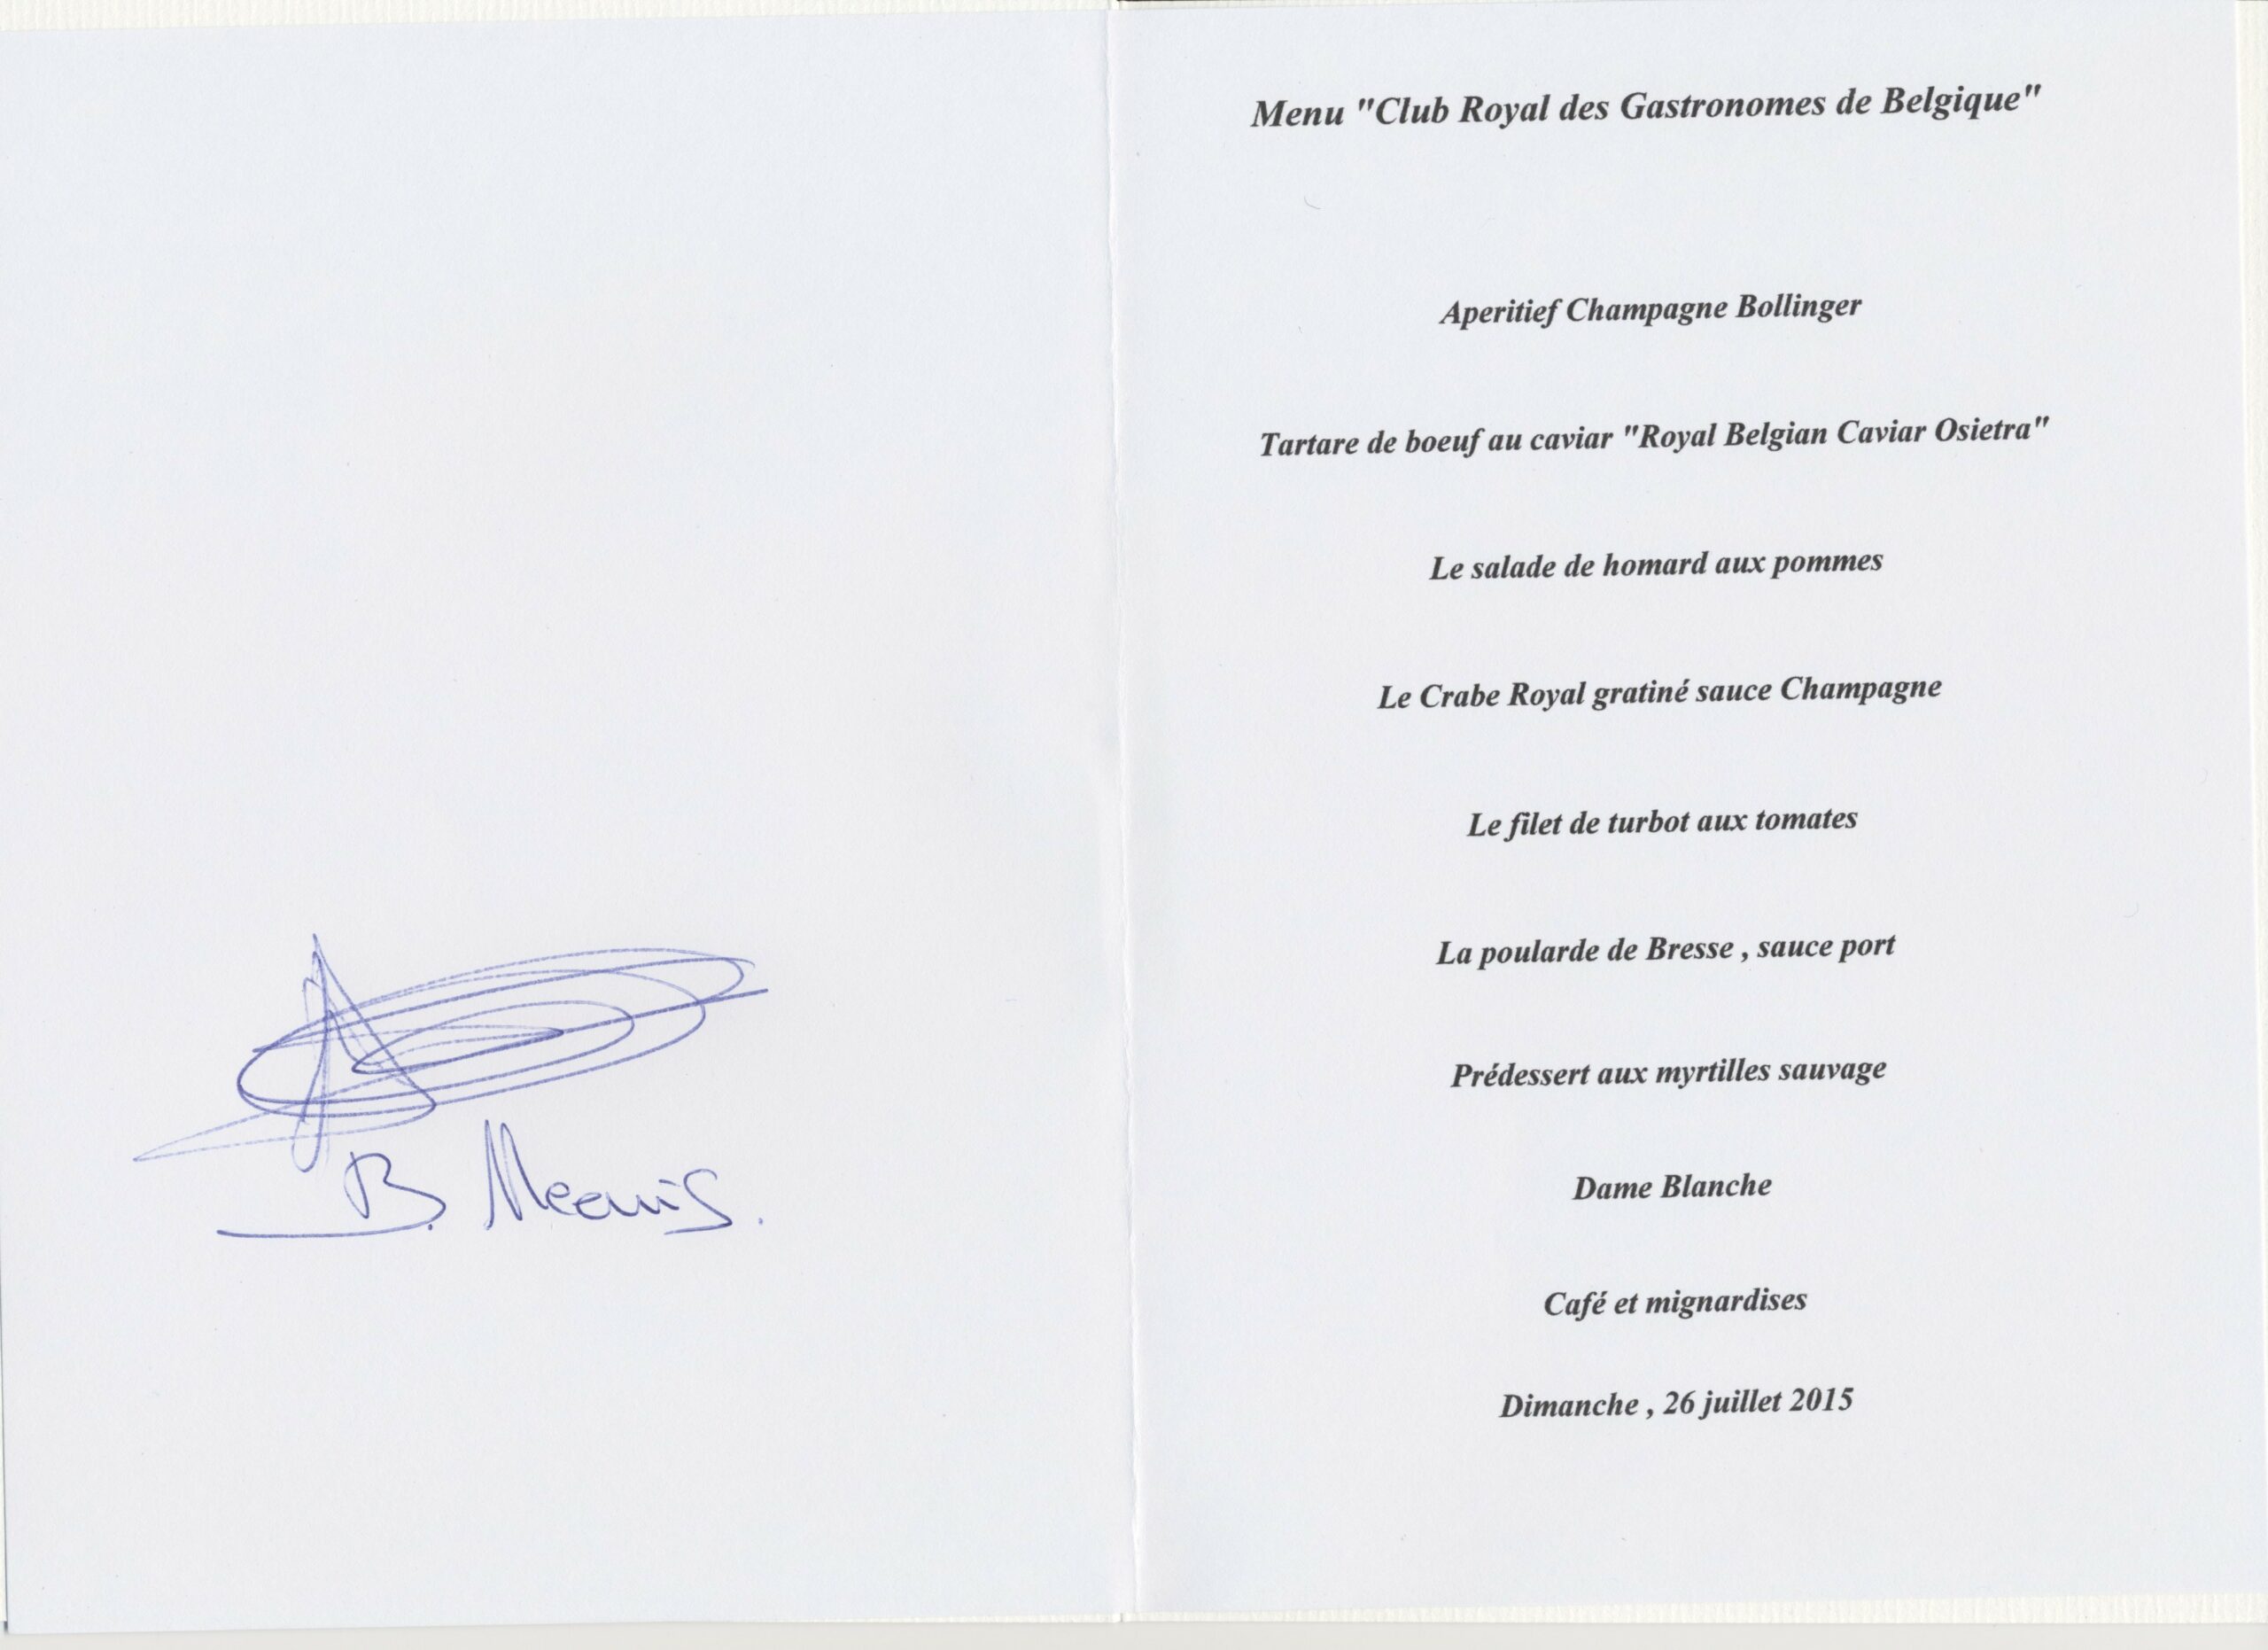 B. Meewis.
Menu "Club Royal des Gastronomes de Belgique"
Aperitief Champagne Bollinger
Tartare de boeuf au caviar "Royal Belgian Caviar Osietra"
Le salade de homard aux pommes
Le Crabe Royal gratiné sauce Champagne
Le filet de turbot aux tomates
La poularde de Bresse , sauce port
Prédessert aux myrtilles sauvage
Dame Blanche
Café et mignardises
Dimanche , 26 juillet 2015